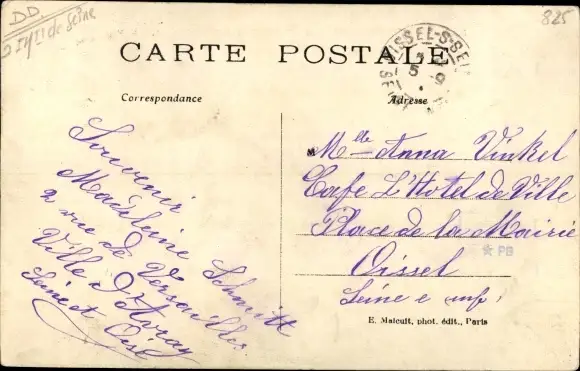 DD
825
CARTE POSTALE
OISSEL-S-SEINE
5 -9
Correspondance
Adresse
Souvenir
Madeleine Schmitt
2 rue de Versailles
Ville d'Avray
Seine et Oise
M lle Anna Vinkel
Cafe L'Hotel de Ville
Place de la Mairie
Oissel
Seine e inf.
PB
E. Malcuit, phot. édit., Paris